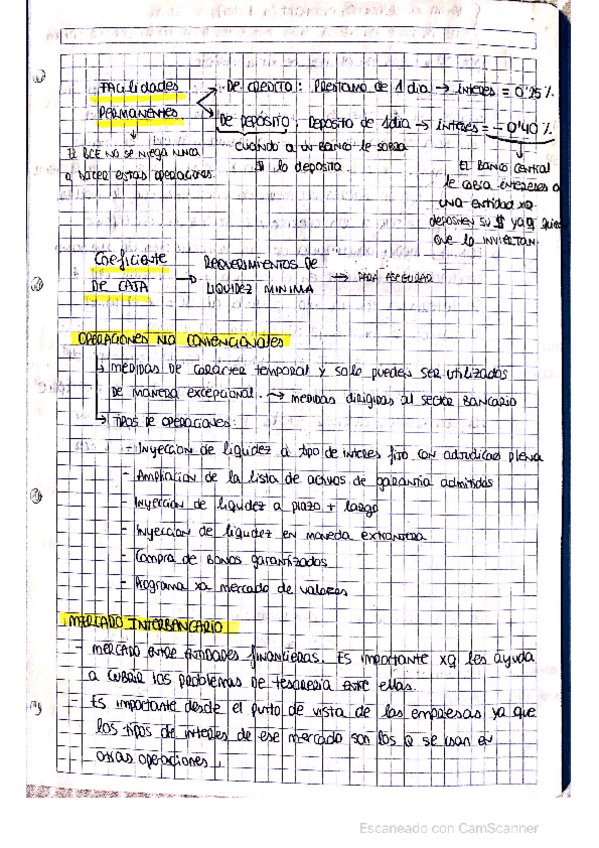 FACILIDADES PERMANENTES
De CREDITO: PRESTAMO DE 1 dia → interes = 0'25 %.
De DEPÓSITO: DEPOSITO DE 1 dia → interes = -0'40 %
El BCE NO SE NIEGA NUNCA
a hacer estas operaciones
cuando a un banco le sobra
$ lo deposita.
El BANCO CENTRAL
le cobra intereses a
una entidad xq
depositen su $ ya q quiere
que lo inviertan.
Coeficiente
DE CAJA
REQUERIMIENTOS DE
LIQUIDEZ MINIMA
→ PARA ASEGURAR
OPERACIONES NO CONVENCIONALES
→ MEDIDAS DE CARÁCTER temporal y solo pueden SER utilizados
DE MANERA EXCEPCIONAL. → MEDIDAS DIRIGIDAS al SECTOR BANCARIO
→ TIPOS DE OPERACIONES:
- Inyeccion de liquidez a tipo de interes fijo con adjudicao plena
- Ampliacion de la lista de activos de garantia admitidos
- Inyeccion de liquidez a plazo + largo
- Inyeccion de liquidez en moneda extranjera
- Compra de bonos garantizados
- Programa xa mercado de valores
MERCADO INTERBANCARIO
- MERCADO ENTRE ENTIDADES financieras. Es importante xq les ayuda
a cubrir los problemas de tesoreria entre ellas.
- Es importante desde el punto de vista de las empresas ya que
los tipos de interes de ese mercado son los q se usan en
otras operaciones.
Escaneado con CamScanner